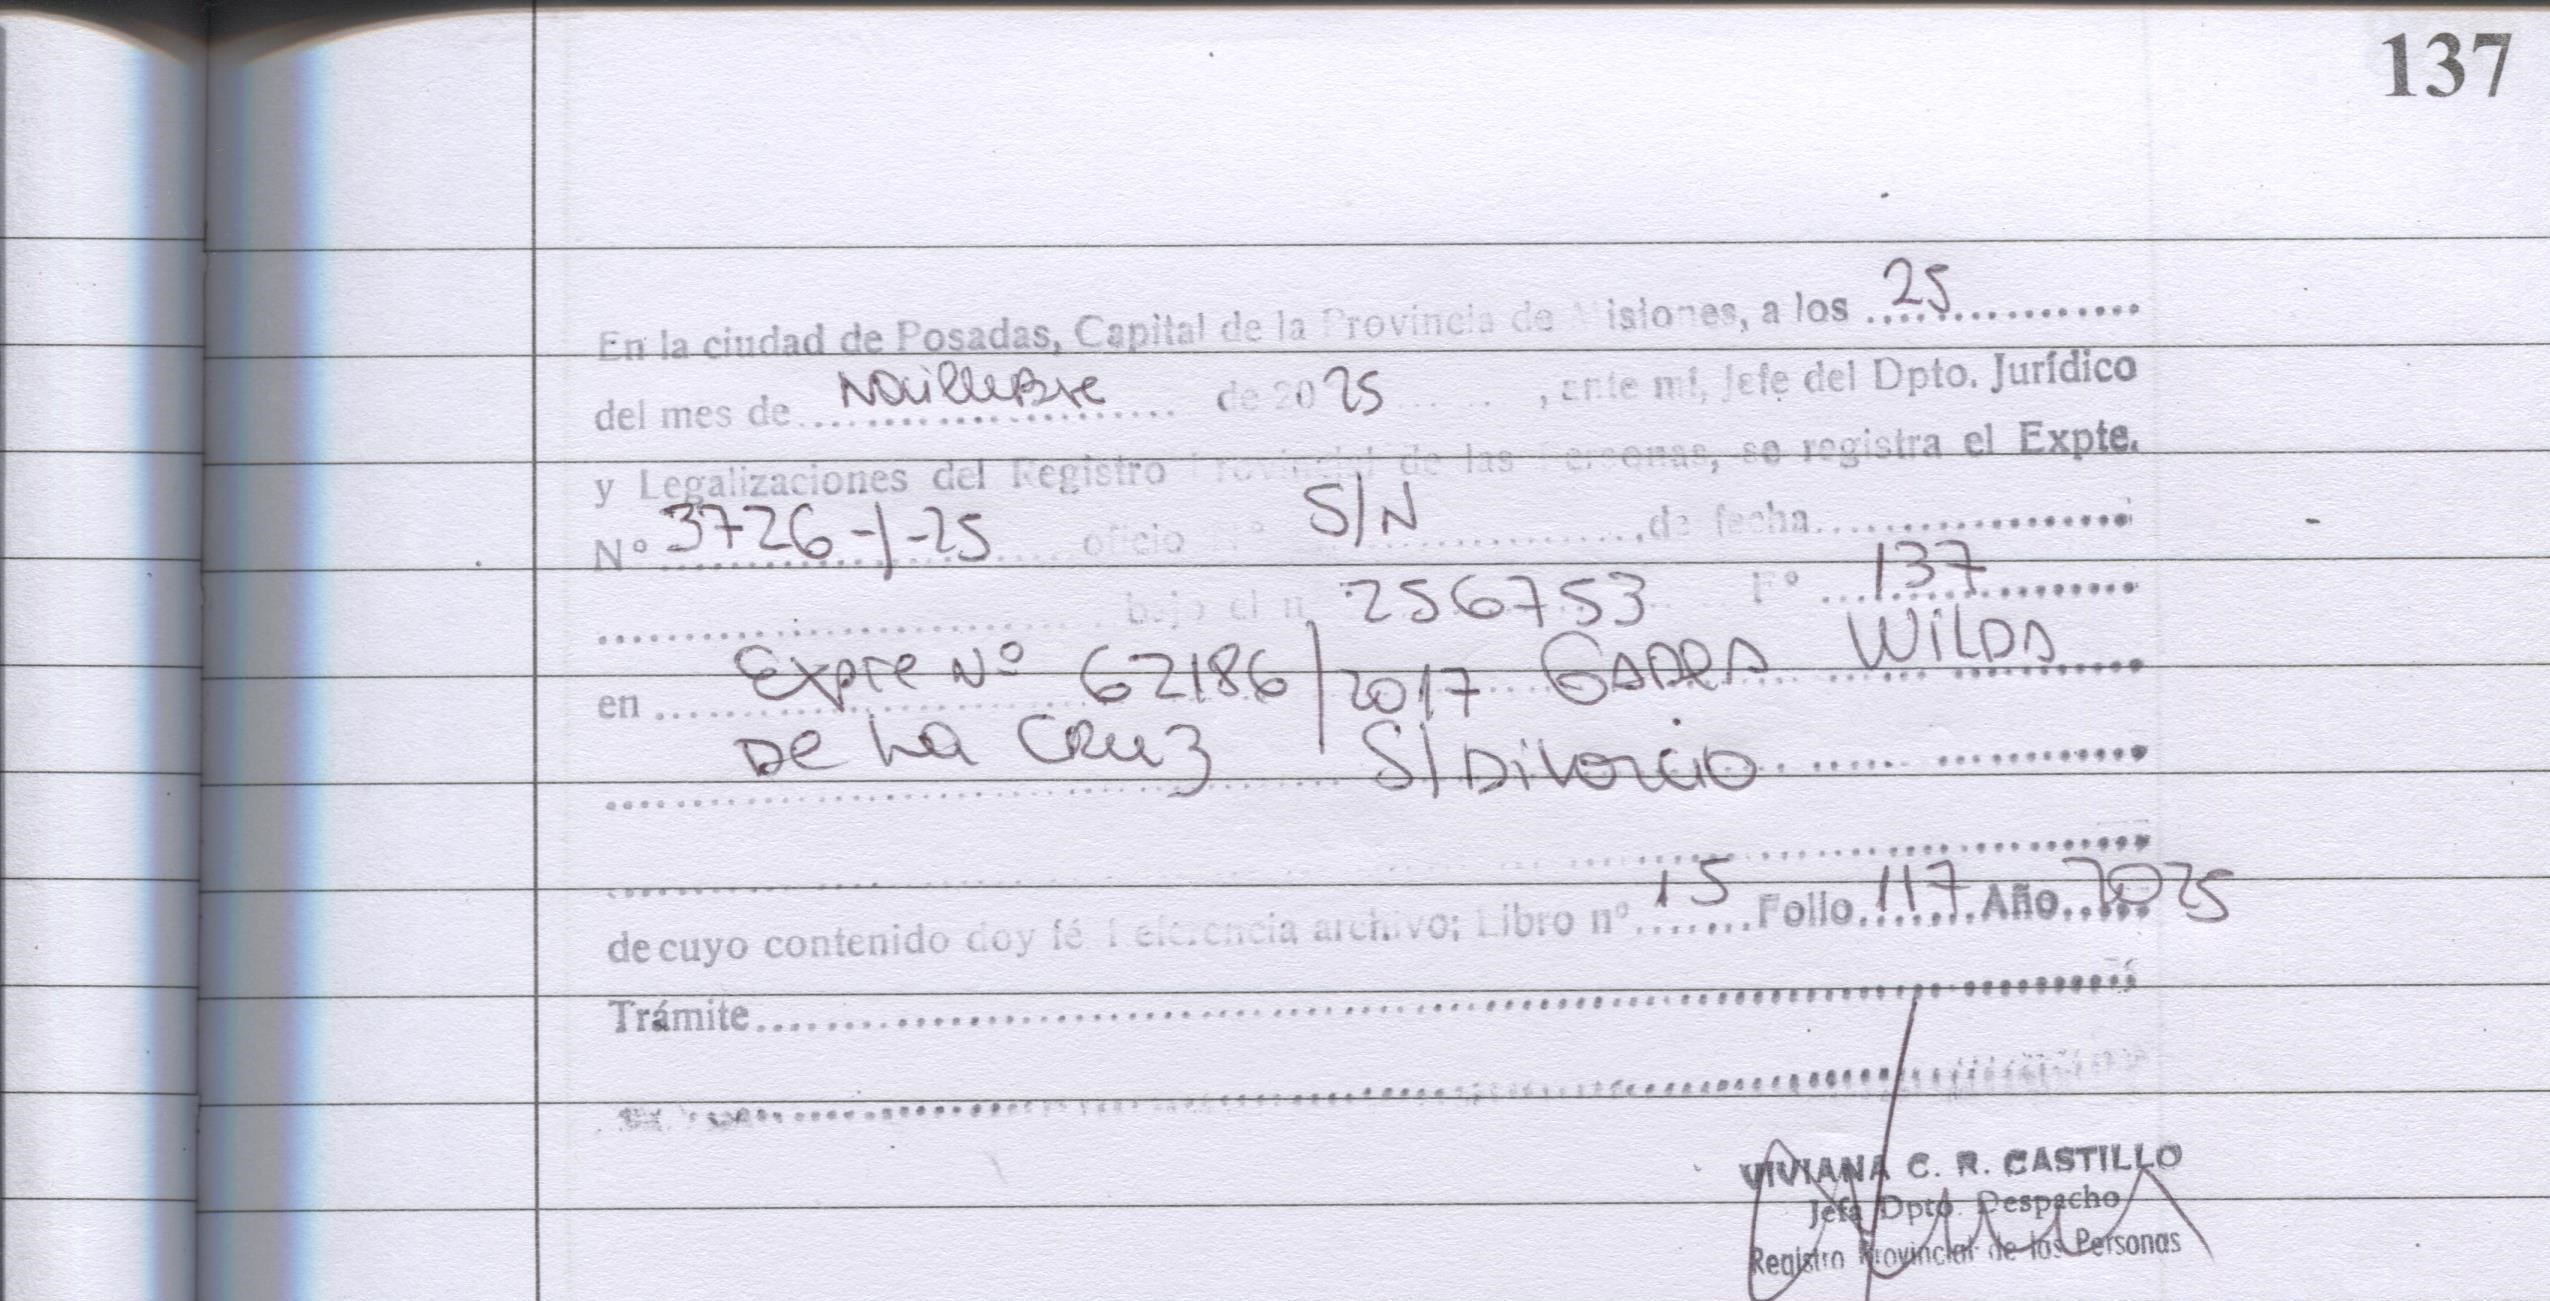 137
En la ciudad de Posadas, Capital de la Provincia de Misiones, a los 25
del mes de Noviembre de 2025, ante mi, Jefe del Dpto. Jurídico
y Legalizaciones del Registro Provincial de las Personas, se registra el Expte.
Nº 3726-I-25 oficio nº S/N, de fecha
bajo el n 256753 Fº 137
en Expte Nº 62186/2017 WILDA
De La Cruz S/Divorcio
de cuyo contenido doy fé Referencia archivo; Libro nº 15 Folio 117 Año 2025
Trámite
VIVIANA C. R. CASTILLO
Jefa Dpto. Despacho
Registro Provincial de las Personas